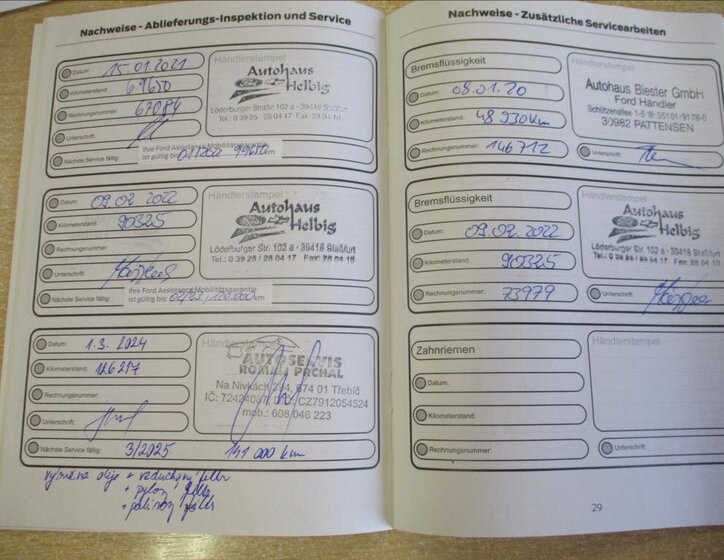 Nachweise - Ablieferungs-Inspektion und Service
Datum: 15.01.2021
Kilometerstand: 69650
Rechnungsnummer: 67084
Unterschrift:
Ihre Ford Assistance Mobilitätsgarantie
Nächste Service fällig: ist gültig bis: 99650 km
Händlerstempel
Autohaus
Helbig
Löderburger Straße 102 a · 39418 Staßfurt
Tel.: 0 39 25 / 28 04 17 Fax: 28 04 10
Datum: 09.02.2022
Kilometerstand: 90325
Rechnungsnummer:
Unterschrift:
Ihre Ford Assistance Mobilitätsgarantie
Nächste Service fällig: ist gültig bis: km
Händlerstempel
Autohaus
Helbig
Löderburger Str. 102 a · 39418 Staßfurt
Tel.: 0 39 25 / 28 04 17 Fax: 28 04 10
Datum: 1.3. 2024
Kilometerstand: 126217
Rechnungsnummer:
Unterschrift:
Nächste Service fällig: 3/2025 141 000 km
Händlerstempel
AUTOSERVIS
ROMAN PRCHAL
Na Nivkách 674 01 Třebíč
IČ: CZ7912054524
mob.: 608 046 223
výměna oleje + vzduchový filtr
+ pylový filtr
+ palivový filtr
Nachweise - Zusätzliche Servicearbeiten
Bremsflüssigkeit
Datum: 08.01.20
Kilometerstand: 48930km
Rechnungsnummer: 146712
Händlerstempel
Autohaus Biester GmbH
Ford Händler
Schützenallee 1-5 ☎ 05101/9178-0
30982 PATTENSEN
Unterschrift:
Bremsflüssigkeit
Datum: 09.02.2022
Kilometerstand: 90325
Rechnungsnummer: 73979
Händlerstempel
Autohaus
Helbig
Löderburger Str. 102 a · 39418 Staßfurt
Tel.: 0 39 25 / 28 04 17 Fax: 28 04 10
Unterschrift:
Zahnriemen
Datum:
Kilometerstand:
Rechnungsnummer:
Händlerstempel
Unterschrift:
29